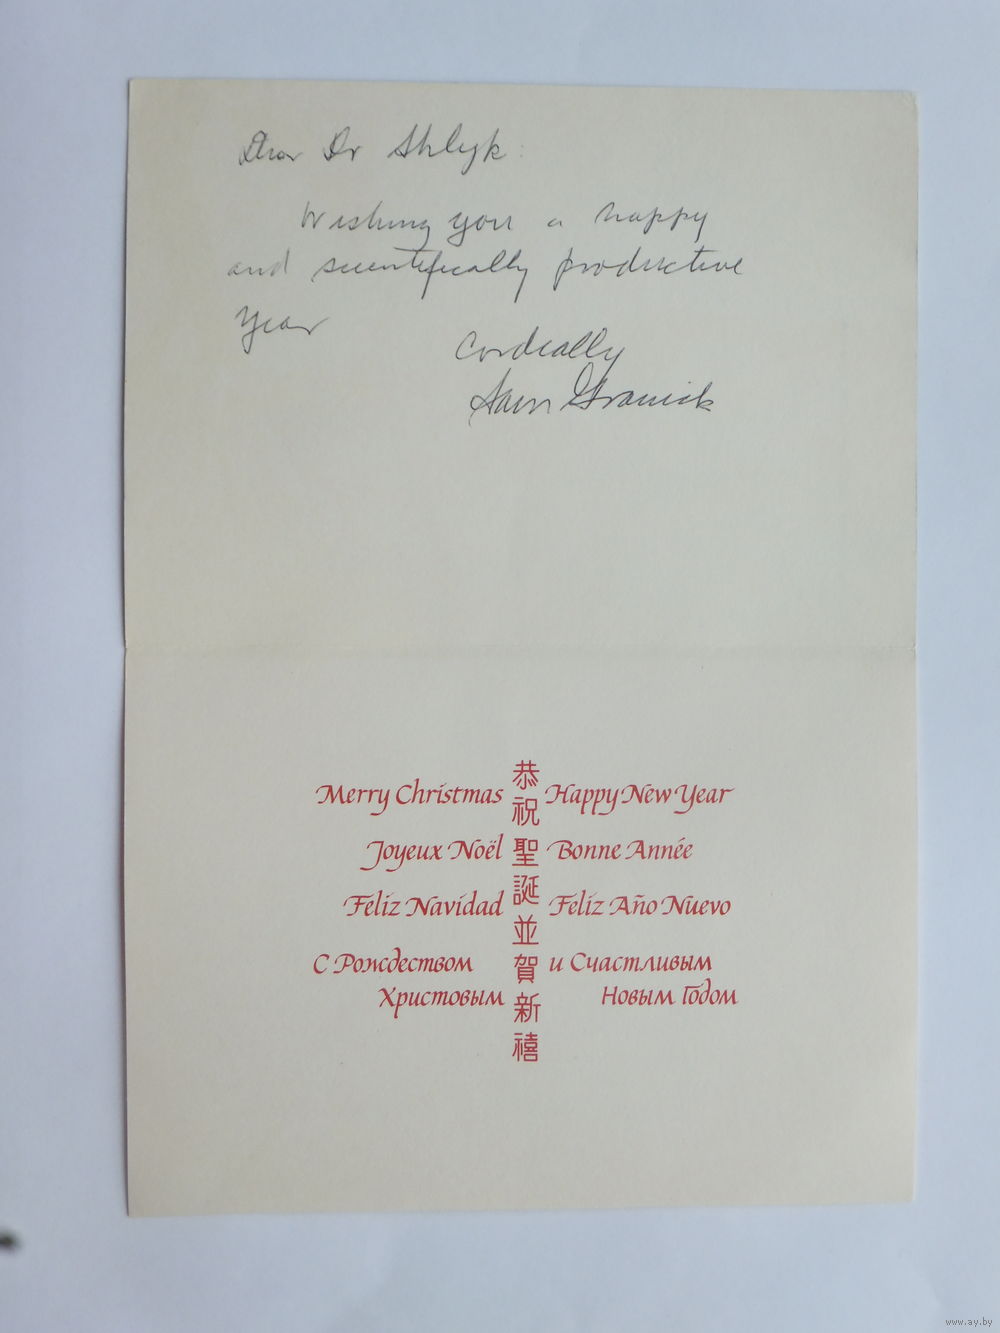 Dear Dr Shlyk:
Wishing you a happy
and scientifically productive
year
Cordially
Sam Granick
恭祝聖誕並賀新禧
Merry Christmas Happy New Year
Joyeux Noël Bonne Année
Feliz Navidad Feliz Año Nuevo
С Рождеством и Счастливым
Христовым Новым Годом
www.ay.by